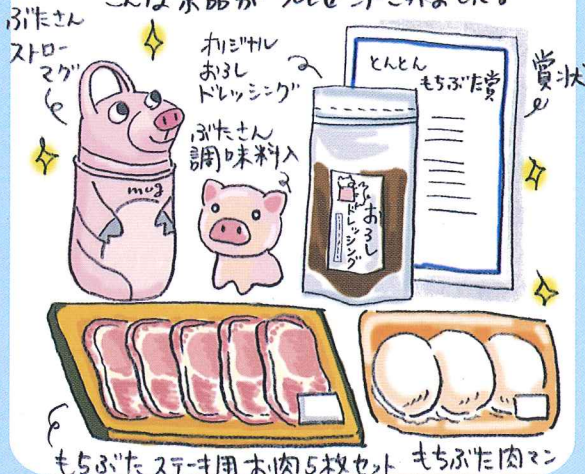 こんな景品がプレゼントされました。
ぶたさん
ストロー
マグ
オリジナル
おろし
ドレッシング
ぶたさん
調味料入
とんとん
もちぶた賞
賞状
mug
おろし
ドレッシング
もちぶた ステーキ用 お肉5枚セット
もちぶた肉マン